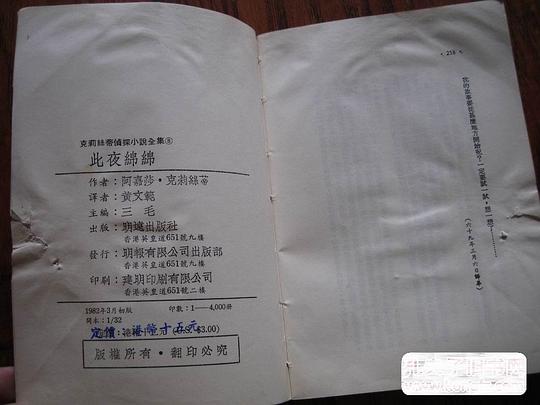 克莉絲蒂偵探小說全集⑧
此夜綿綿
作者：阿嘉莎・克莉絲蒂
譯者：黃文範
主編：三 毛
出版：明遠出版社
香港英皇道651號九樓
發行：明報有限公司出版部
香港英皇道651號九樓
印刷：建明印刷有限公司
香港英皇道651號二樓
1982年3月初版 印數：1——4,000册
開本：1/32
定價：港幣十五元
(U.S. $3.00)
版權所有・翻印必究
你的故事要從甚麼地方開始呢？一定要試一試，想一想？…………
（六十九年三月六日譯畢）